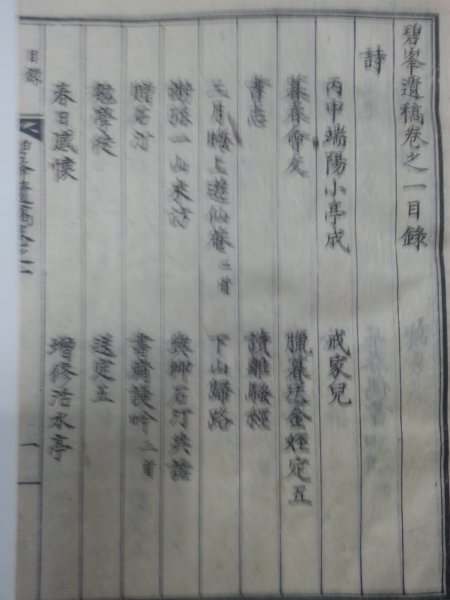 碧峯遺稿卷之一目錄
詩
丙申端陽小亭成 戒家兒
暮春會友 臘暮送金姪定五
書志 讀離騷經
三月晦上遊仙菴二首 下山歸路
謝孫一山來訪 與柳石汀共諧
贈石汀 書齋謾吟二首
送定五
春日感懷 增修活水亭
目錄
一